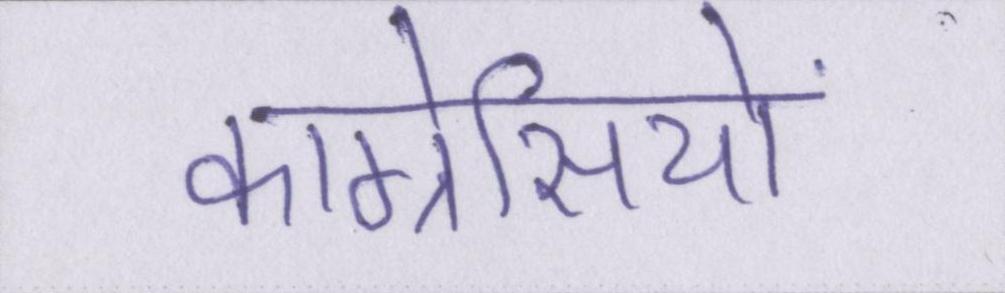 काग्रेसियों